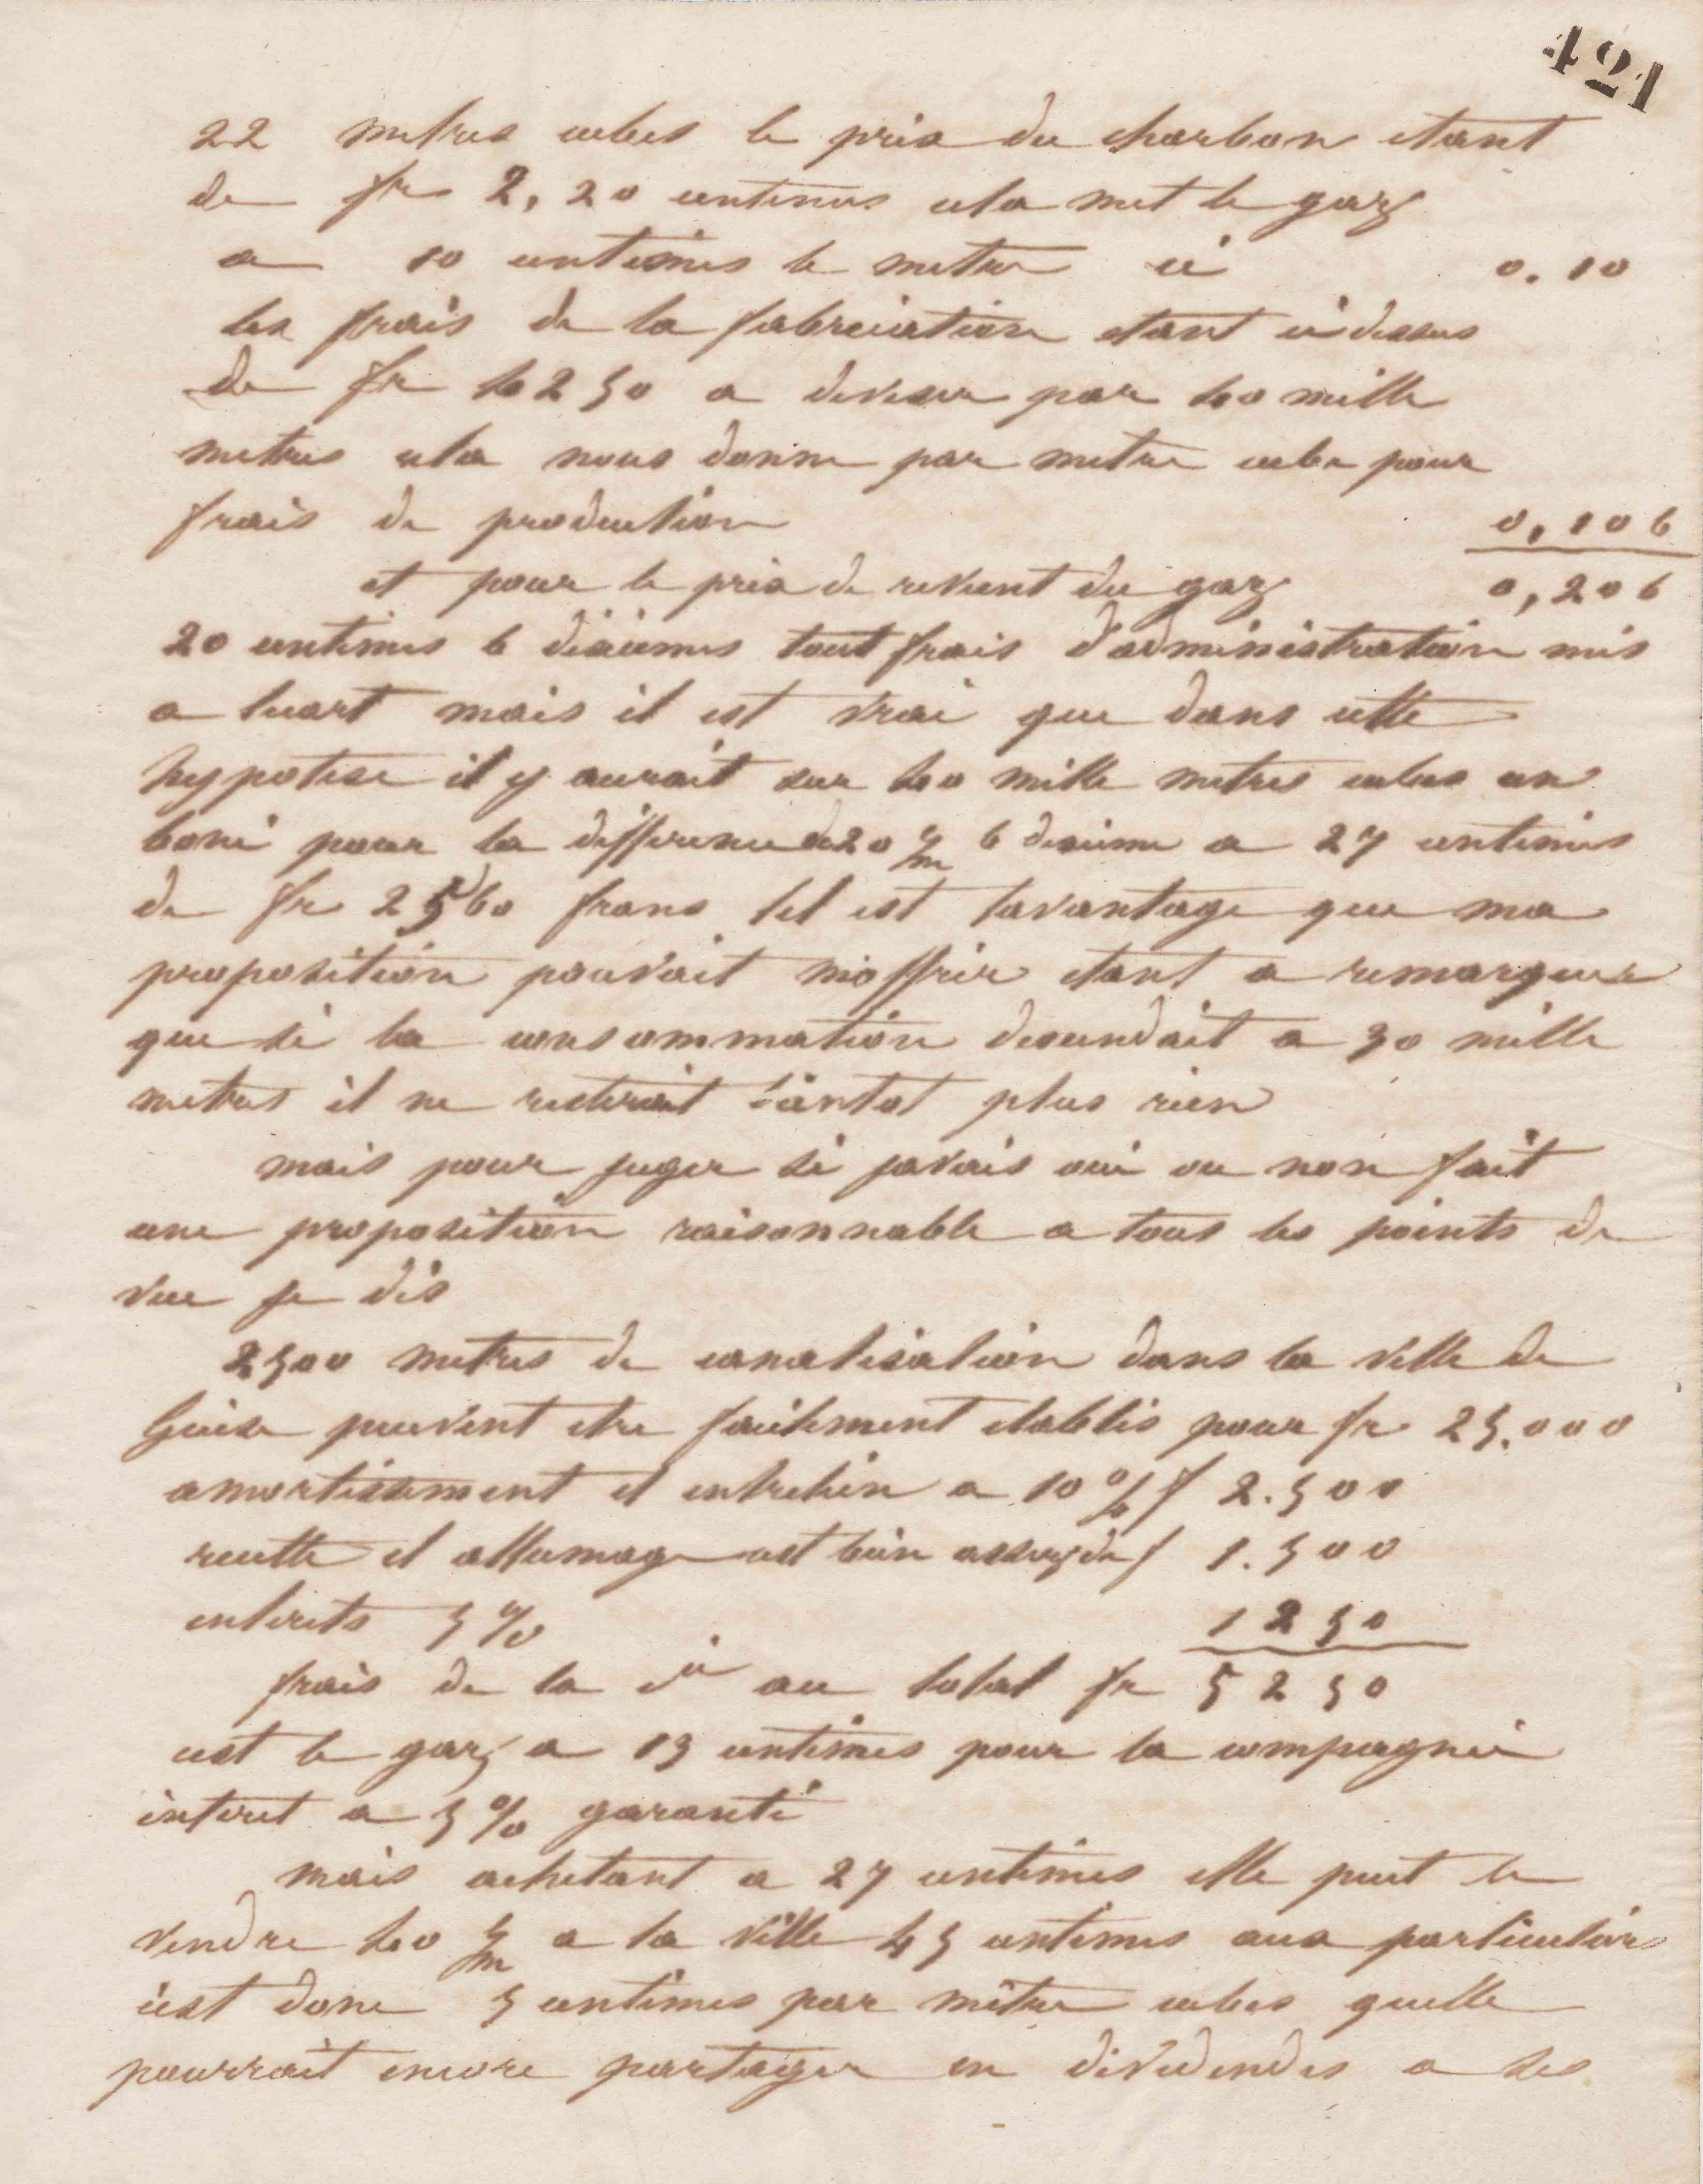 421
22 metres cubes le prix du charbon etant
de fr 2,20 centimes cela met le gaz
a 10 centimes le metre ci 0.10
les frais de la fabreication etant ci dessus
de fr 4250 a diviser par 40 mille
metres cela nous donne par metre cube pour
frais de production 0,106
et pour le prix de revient du gaz 0,206
20 centimes 6 dixiemes tout frais d'administration mis
a lecart mais il est vrai que dans cette
hypotese il y aurait sur 40 mille metres cubes un
boni pour la difference de 20 c/m 6 dixieme a 27 centimes
de fr 2560 francs tel est lavantage que ma
proposition pouvait moffrir etant a remarquer
que si la consommation descendait a 30 mille
metres il ne resterait bientot plus rien
mais pour juger si javais oui ou non fait
une proposition raisonnable a tous les points de
vue je dis
2500 metres de canalisation dans la ville de
Guise peuvent etre facilement etablis pour fr 25.000
amortissement et entretien a 10 % f 2.500
recette et allumage cest bien assez de f 1.500
enterets 5 % 1250
frais de la cie au total fr 5250
cest le gaz a 13 centimes pour la compagnie
interet a 5 % garanti
mais achetant a 27 centimes elle peut le
vendre 40 c/m a la ville 45 centimes aux particuliers
cest donc 5 centimes par mêtre cubes quelle
pourrait encore partager en dividendes a ses